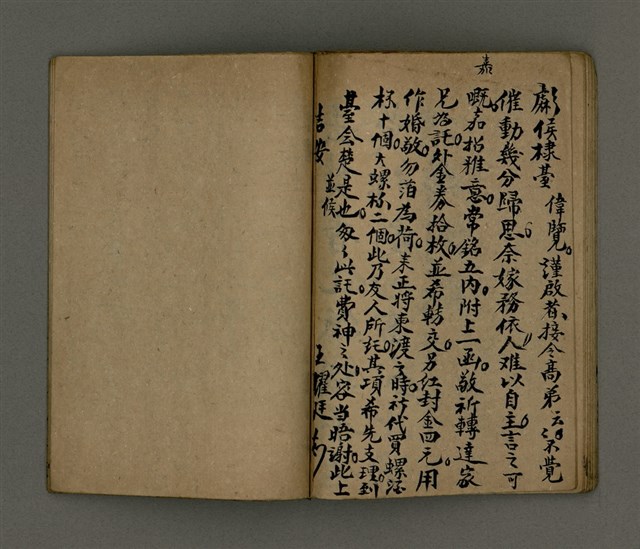 嘉
彭侯棣臺 偉覽。謹啟者、接令高弟云々、不覺
催動幾分歸思。奈嫁務依人、难以自主、言之可
嘅。加招雅意、常銘五內。附上一函、敬祈轉達家
兄為託。外金券拾枚、並希轉交。另紅封金四元、用
作婚敬、勿箔為荷。来正將東渡之時、祈代買螺孫
杯十個、大螺杯二個、此乃友人所託、其項希先支理、到
臺会楚是也。匆々此託、費神之处、容当晤谢。此上
吉安 並候 王耀廷